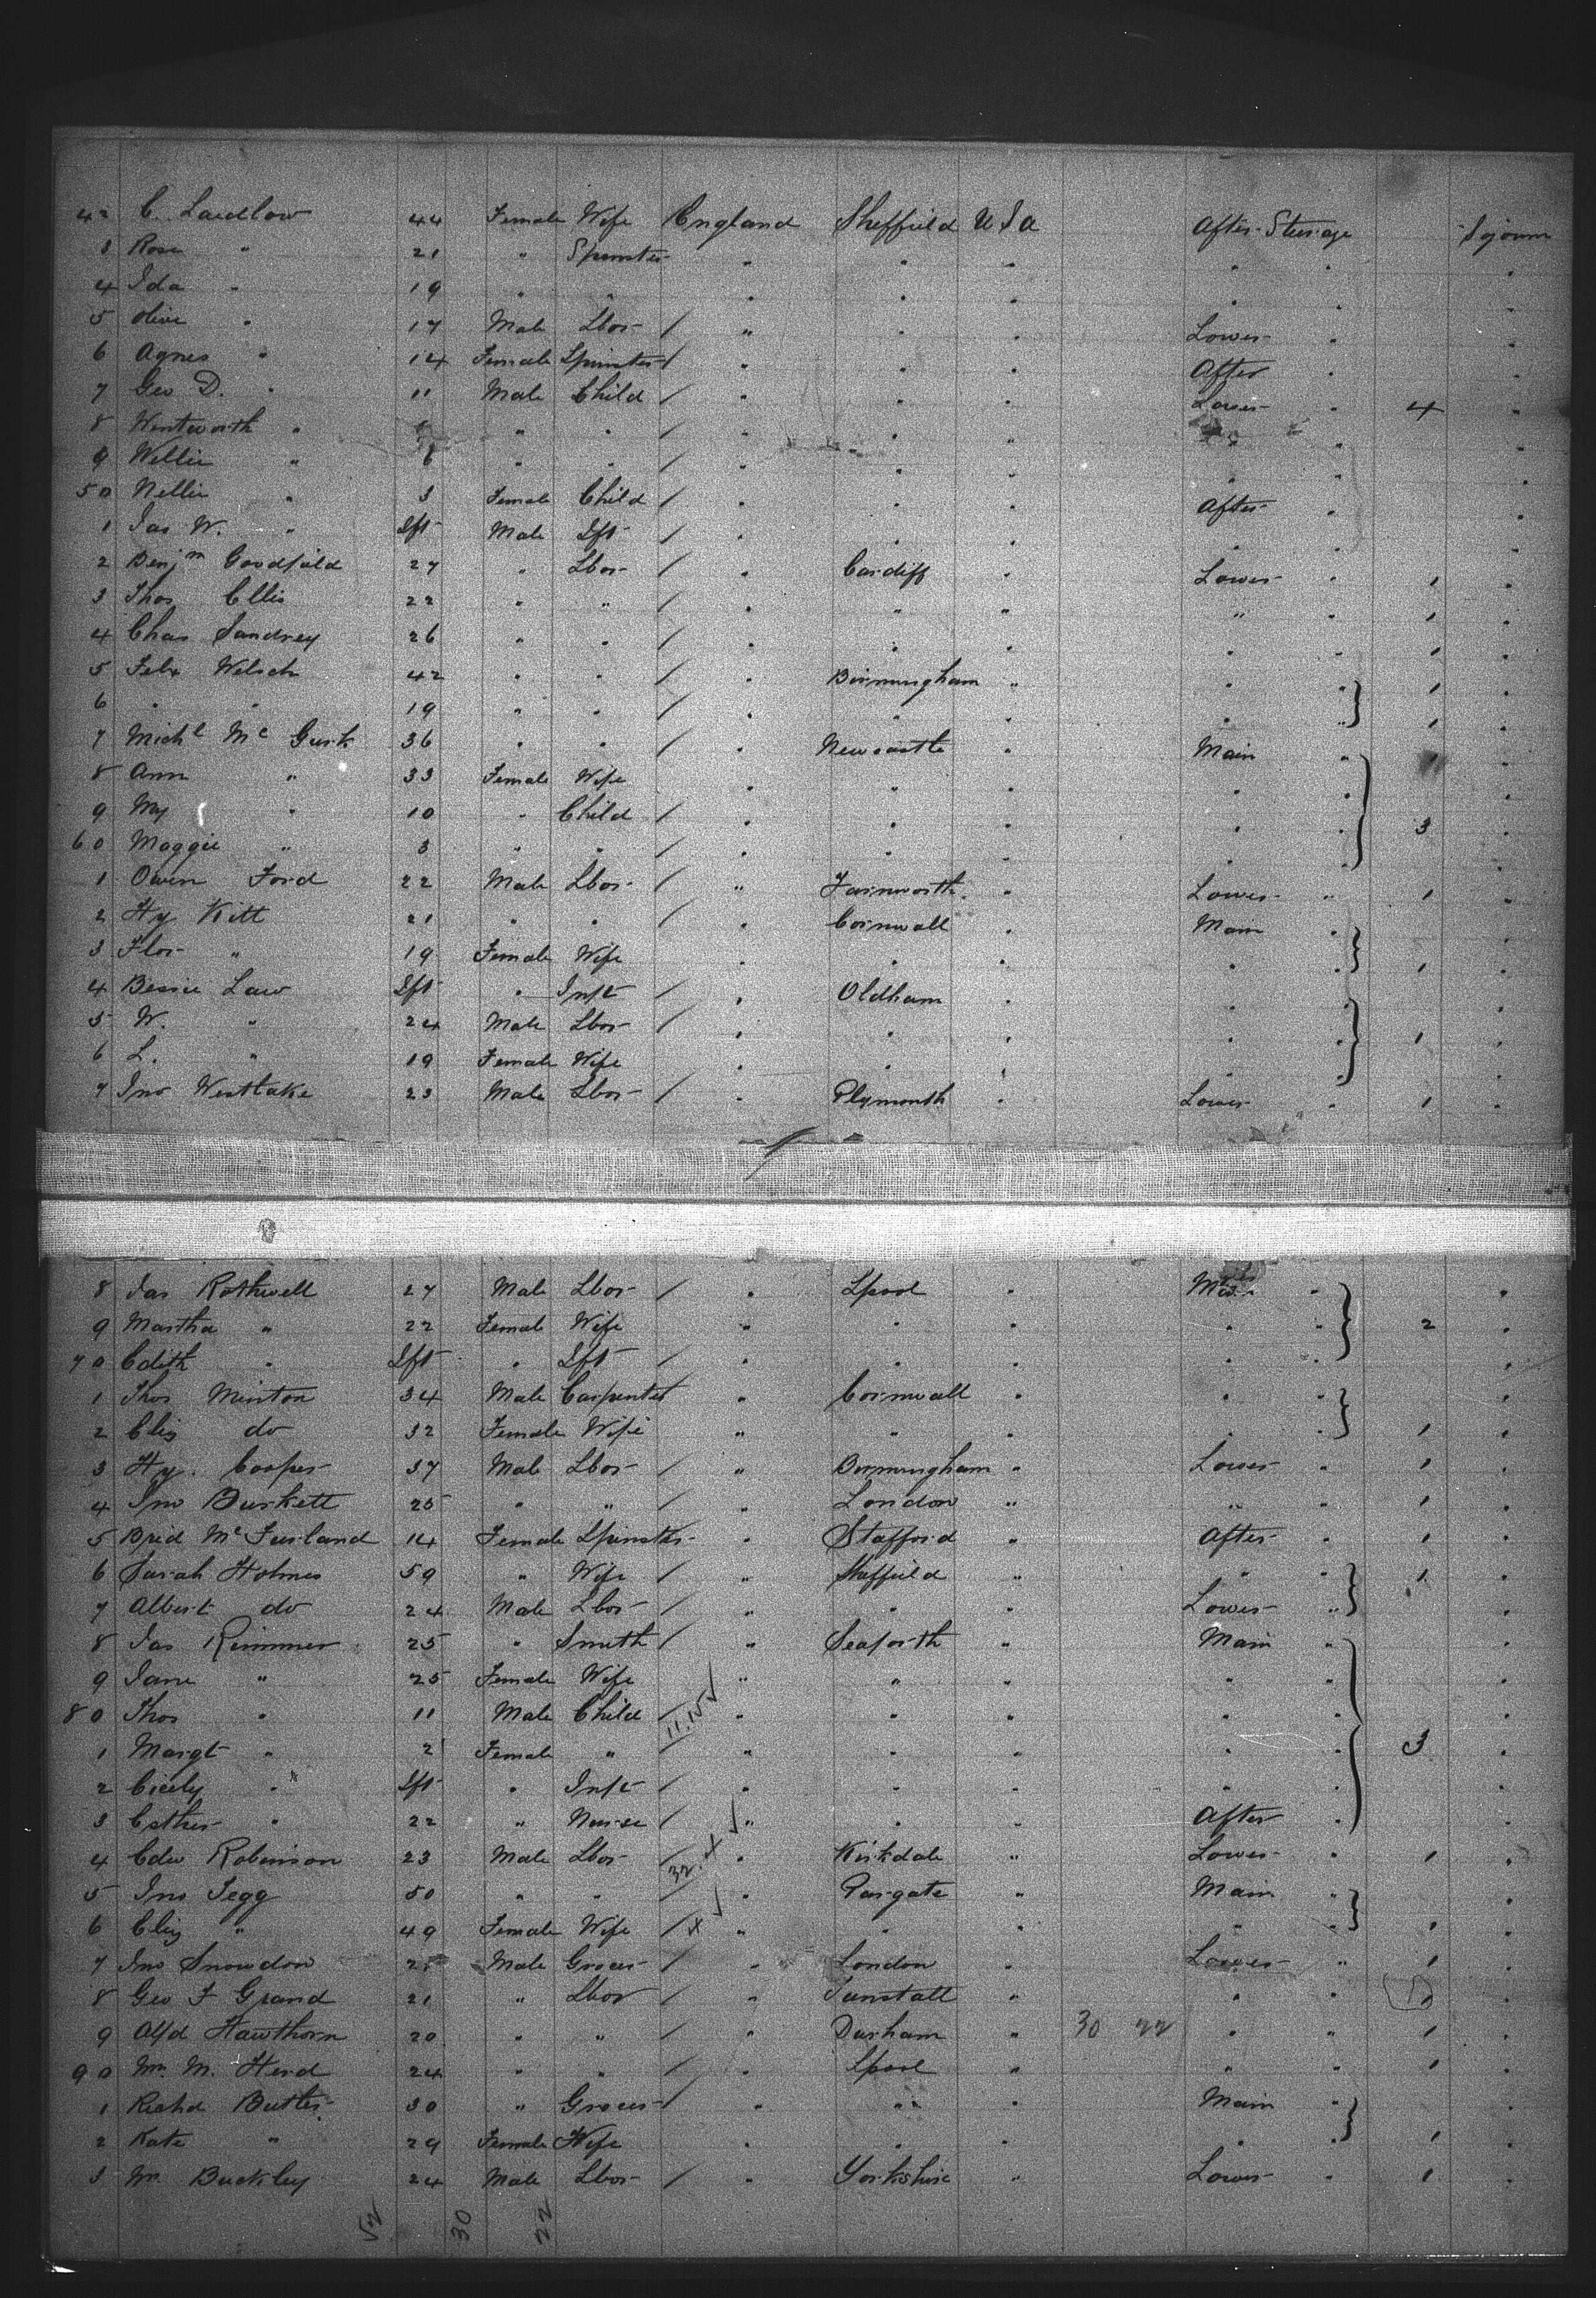 42 C. Laidlow 44 Female Wife England Sheffield U S A After Steerage Sojourn
3 Rose " 21 " Spinster " " " " " "
4 Ida " 19 " " " " " " " "
5 Olive " 17 Male Lbor / " " " Lower " "
6 Agnes " 14 Female Spinster / " " " After " "
7 Geo D. " 11 Male Child / " " " Lower " 4 "
8 Wentworth " " " / " " " " " "
9 Willie " 6 " " / " " " " " "
50 Nellie " 3 Female Child / " " " After " "
1 Jas W. " Ift Male Ift / " " " " " "
2 Benjm Goodfield 27 " Lbor / " Cardiff " Lower " 1 "
3 Thos Ellis 22 " " / " " " " " 1 "
4 Chas Sandrey 26 " " / " " " " " 1 "
5 Felx Welsch 42 " " / " Birmingham " " " 1 "
6 " " 19 " " / " " " " " 1 "
7 Michl Mc Gurk 36 " " / " Newcastle " Main " 1 "
8 Ann " 33 Female Wife " " " " " "
9 My " 10 " Child / " " " " " 3 "
60 Maggie " 3 " " / " " " " " "
1 Owen Ford 22 Male Lbor / " Farnworth " Lower " 1 "
2 Hy Kitt 21 " " / " Cornwall " Main " "
3 Flor " 19 Female Wife " " " " " 1 "
4 Bessie Law Ift " Inft / " Oldham " " " "
5 W. " 24 Male Lbor / " " " " " 1 "
6 L. " 19 Female Wife " " " " " "
7 Jno Westlake 23 Male Lbor / " Plymouth " Lower " 1 "
8 Jas Rothwell 27 Male Lbor / " Lpool " Main " "
9 Martha " 22 Female Wife " " " " " 2 "
70 Edith " Ift " Ift / " " " " " "
1 Thos Minton 34 Male Carpenter " Cornwall " " " "
2 Eliz do 32 Female Wife " " " " " 1 "
3 Hy. Cooper 37 Male Lbor / " Birmingham " Lower " 1 "
4 Jno Burkett 25 " " / " London " " " 1 "
5 Brid Mc Furland 14 Female Spinster " Stafford " After " 1 "
6 Sarah Holmes 59 " Wife / " Sheffield " " " 1 "
7 Albert do 24 Male Lbor / " " " Lower " "
8 Jas Rimmer 25 " Smith / " Seaforth " Main " "
9 Jane " 25 Female Wife " " " " " "
80 Thos " 11 Male Child / " " " " " "
1 Margt " 2 Female " / " " " " " 3 "
2 Cicely " Ift " Inft / " " " " " "
3 Esther " 22 " Nurse / " " " After " "
4 Edw Robinson 23 Male Lbor / " Kirkdale " Lower " 1 "
5 Jno Tegg 50 " " / " Pargate " Main " "
6 Eliz " 49 Female Wife / x " " " " " 1 "
7 Jno Snowdon Male Grocer / " London " Lower " 1 "
8 Geo F Grand 21 " Lbor / " Tunstall " " " 1 "
9 Alfd Hawthorn 20 " " / " Durham " 30 22 " " 1 "
90 Wm M. Herd 24 " " / " Lpool " " " 1 "
1 Richd Butler 30 " Grocer / " " " Main " "
2 Kate " 29 Female Wife " " " " " 1 "
3 Wm Buckley 24 Male Lbor / " Yorkshire " Lower " 1 "
52 30 22